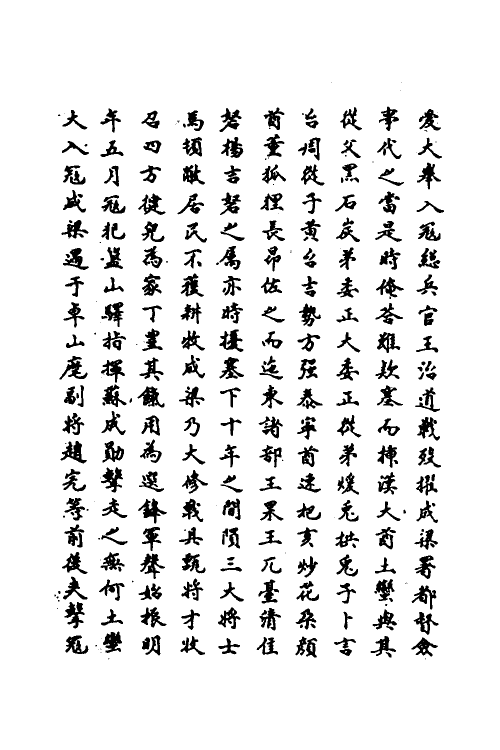 愛大舉入冦總兵官王治道戰歿擢成梁署都督僉
事代之當是時俺荅雖欵塞而揷漢大酋土蠻與其
從父黑石炭弟委正大委正從弟煖兎拱兎子卜言
台周從子黃台吉勢方强泰寧酋速把亥炒花朶顔
酋董狐狸長昂佐之而迤東諸部王杲王兀臺淸佳
砮楊吉砮之屬亦時擾塞下十年之間隕三大將士
馬頓敝居民不獲耕牧成梁乃大修戰具甄將才收
召四方健兒為家丁豊其餼用為選鋒軍聲始振明
年五月冦犯盤山驛指揮蘇成勛擊走之無何土蠻
大入冦成梁遇于卓山麾副將趙完等前後夾擊冦